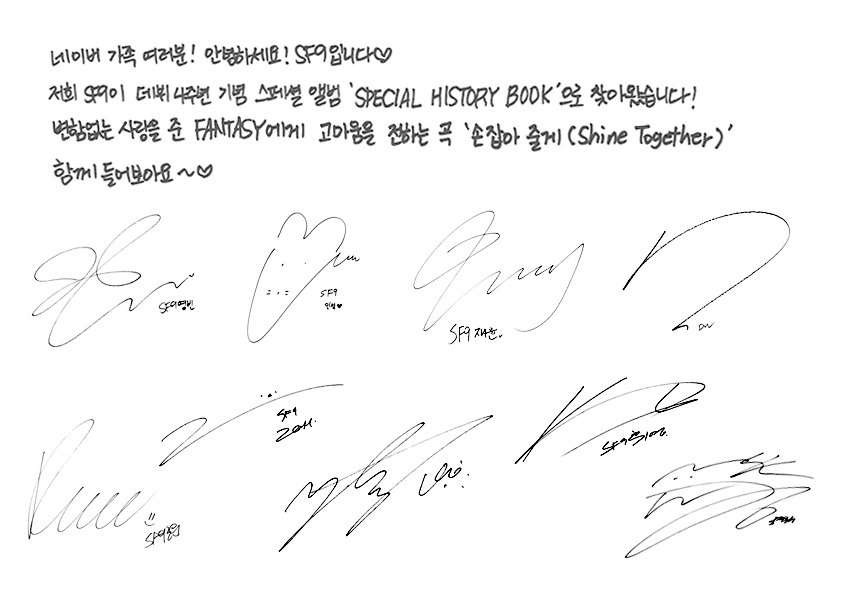 네이버 가족 여러분! 안녕하세요! SF9입니다♡
저희 SF9이 데뷔 4주년 기념 스페셜 앨범 'SPECIAL HISTORY BOOK'으로 찾아왔습니다!
변함없는 사랑을 준 FANTASY에게 고마움을 전하는 곡 '손잡아 줄게(Shine Together)'
함께 들어보아요~♡
SF9영빈
SF9
인성♥
SF9 재윤
SF9
SF9휘영
SF9주호